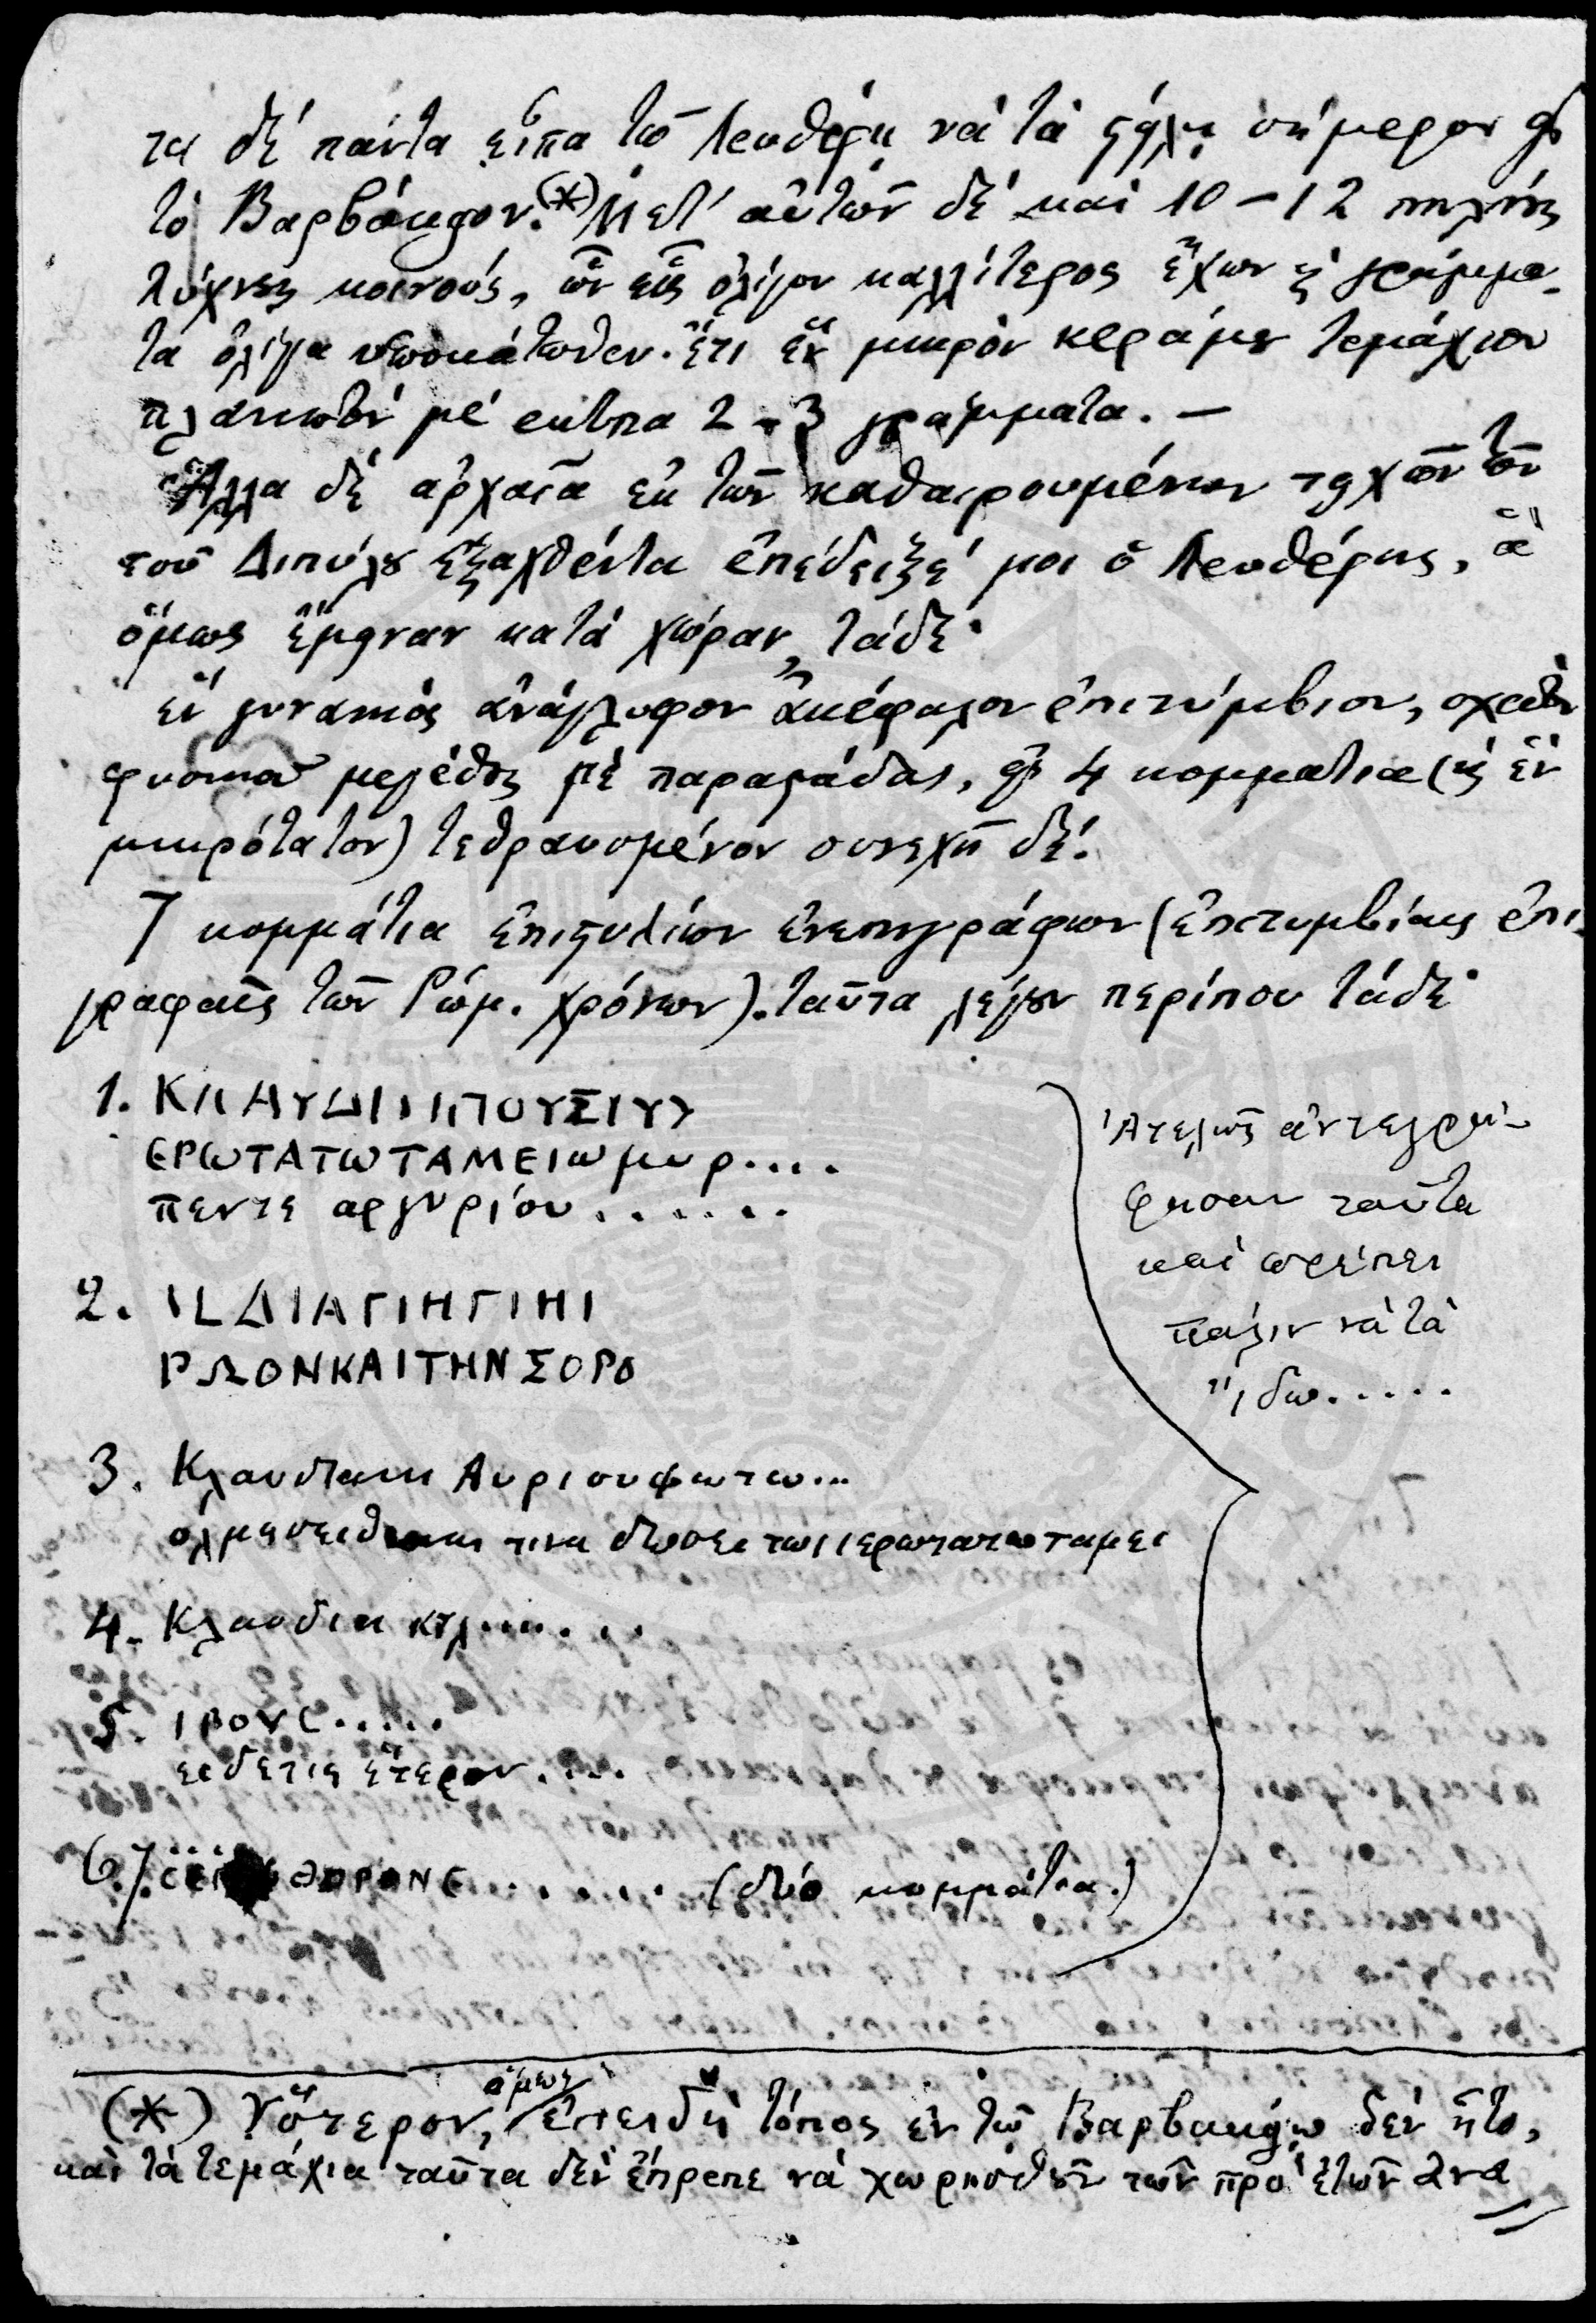 τα δὲ πάντα εἶπα τῷ Λευθέρῃ νὰ τὰ στείλῃ σήμερον εἰς
τὸ Βαρβάκειον.(*) Μετ' αὐτῶν δὲ καὶ 10 – 12 πηλίνους
λύχνους κοινούς, ὧν εἷς ὀλίγον καλλίτερος ἔχων καὶ γράμμα-
τα ὀλίγα ὑποκάτωθεν. ἔτι ἓν μικρὸν κεράμου τεμάχιον
πλακωτὸν μὲ ἔκτυπα 2 – 3 γράμματα. –
Ἄλλα δὲ ἀρχαῖα ἐκ τῶν καθαιρουμένων τειχῶν τῶν
τοῦ Διπύλου ἐξαχθέντα ἐπέδειξέ μοι ὁ Λευθέρης, ἃ
ὅμως ἔμειναν κατὰ χώραν, τάδε·
ἓν γυναικὸς ἀνάγλυφον ἀκέφαλον ἐπιτύμβιον, σχεδὸν
φυσικοῦ μεγέθους μὲ παραστάδας, εἰς 4 κομμάτια (καὶ ἓν
μικρότατον) τεθραυσμένον συνεχῆ δέ.
7 κομμάτια ἐπιστυλίων ἐνεπιγράφων (ἐπιτυμβίους ἐπι-
γραφὰς τῶν Ῥωμ. χρόνων). ταῦτα λέγουν περίπου τάδε·
1. ΚΛΑΥΔΙΙΙΠΟΥΣΙΥ
ΕΡΩΤΑΤΩΤΑΜΕΙΩ μυρ....
πεντε αργυρίου.......
2. ΙLΔΙΑΓΙΗΓΙΗΙ
ΡΩΟΝΚΑΙΤΗΝΣΟΡΟ
3. Κλαυδιανη Αυριουφωτω...
τινα δωσει τωιιερωτατωταμει
4. Κλαυδια κτλ.......
5. ΙΡΟΝC.....
ειδετις ἕτερον....
6. 7. ΘΟΡΟΝΕ....... (δύο κομμάτια.)
Ἀτελῶς ἀντεγρά-
φησαν ταῦτα
καὶ πρέπει
πάλιν νὰ τὰ
ἴδω.....
(*) Ὕστερον, ὅμως ἐπειδὴ τόπος ἐν τῷ Βαρβακείῳ δὲν ἦτο,
καὶ τὰ τεμάχια ταῦτα δὲν ἔπρεπε νὰ χωρισθοῦν τῶν πρὸ ἐτῶν ἀνα